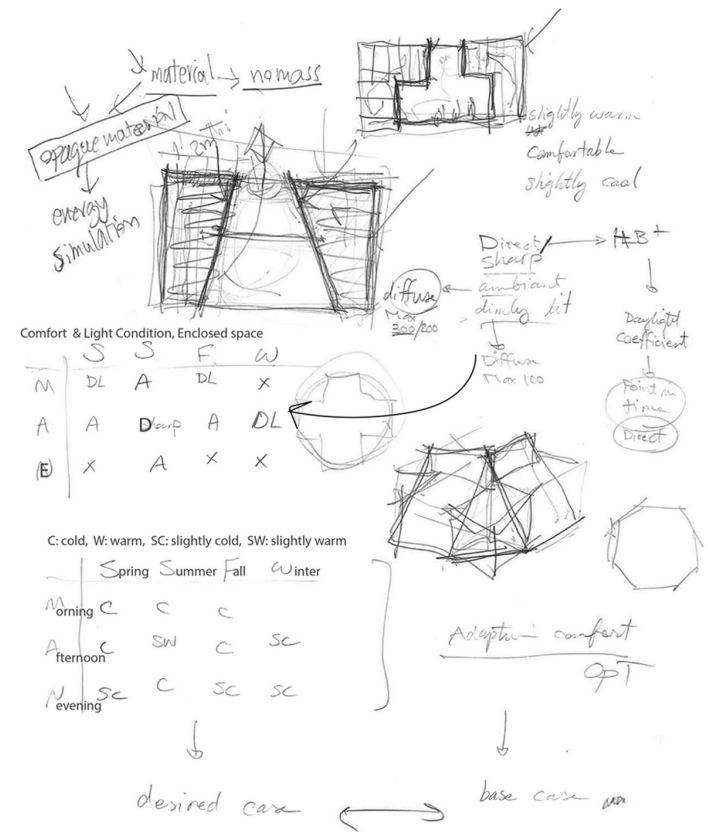 material → no mass
opaque material
energy
simulation
slightly warm
comfortable
slightly cool
Direct → HB+
sharp
ambiant
diffuse
Max
300/200
dimley lit
Diffuse
Max 100
Daylight
Coefficient
Point in
time
Direct
Comfort & Light Condition, Enclosed space
S S F W
M DL A DL X
A A Dsharp A DL
(E) X A X X
C: cold, W: warm, SC: slightly cold, SW: slightly warm
Spring Summer Fall Winter
Morning C C C
Afternoon C SW C SC
N evening SC C SC SC
comfort
OPT
desired case
base case